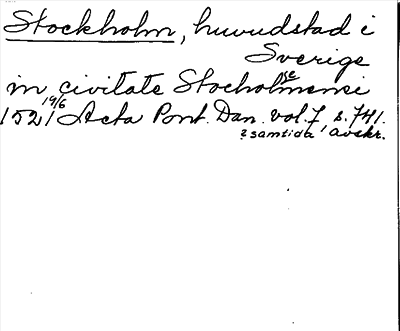 Stockholm, huvudstad i
Sverige
in civitate Stocholmensi
1521 19/6 Acta Pont. Dan. vol. 7 s. 741.
? samtida avskr.